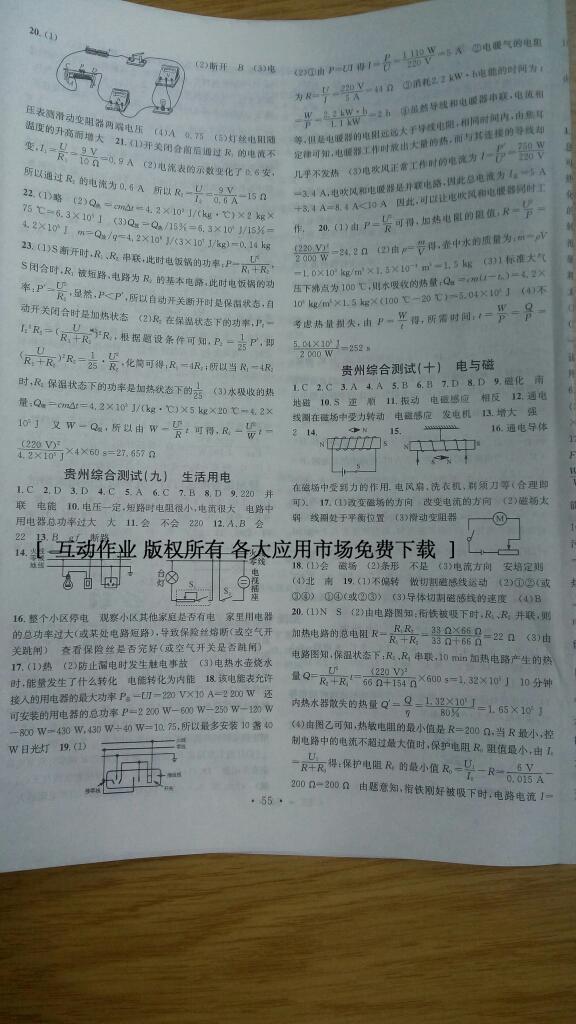 20.(1)
(2)断开 B (3)电
压表测滑动变阻器两端电压 (4)A 0.75 (5)灯丝电阻随
温度的升高而增大 21.(1)开关闭合前后通过 R₁ 的电流不
变,I₁=U/R₁=9 V/10 Ω=0.9 A (2)电流表的示数变化了 0.6 安,
所以通过 R₂ 的电流为 0.6 A 所以 R₂=U/I₂=9 V/0.6 A=15 Ω
22.(1)略 (2)Q吸=cmΔt=4.2×10³ J/(kg·℃)×2 kg×
75 ℃=6.3×10⁵ J (3)Q放=Q吸/15%=6.3×10⁵ J/15%=
4.2×10⁶ J m=Q放/q=4.2×10⁶ J/(3×10⁷ J/kg)=0.14 kg
23.(1)S断开时,R₁、R₂ 串联,此时电饭锅的功率:P=U²/(R₁+R₂),
S闭合时,R₁ 被短路,电路为 R₂ 的基本电路,此时电饭锅的功
率:P′=U²/R₂,显然,P<P′,所以自动开关断开时是保温状态,自
动开关闭合时是加热状态 (2)R₂ 在保温状态下的功率,P₂=
I₂²R₂=(U/(R₁+R₂))²R₂,根据题设条件可知,P₂=1/25 P′,即
(U/(R₁+R₂))²R₂=1/25·U²/R₂,化简可得:R₁=4R₂;所以当 R₁=4R₂
时,R₂ 保温状态下的功率是加热状态下的1/25 (3)水吸收的热
量:Q吸=cmΔt=4.2×10³ J/(kg·℃)×5 kg×20 ℃=4.2×
10⁵ J 又 W=Q吸,所以由 W=U²/R t 可得,R₂=U²/W t=
(220 V)²/4.2×10⁵ J×4×60 s=27.657 Ω
贵州综合测试(九) 生活用电
1.C 2.D 3.D 4.C 5.A 6.C 7.B 8.D 9.220 并
联 电能 10.电压一定,短路时电阻很小,电流很大 电路中
用电器总功率过大 大 11.会 不会 220 12.A、B 会
22 13.B gf 断路
[ 互动作业 版权所有 各大应用市场免费下载 ]
14. 火线 零线 地线
15. 火线 零线 台灯 S₁ S₂ 电视插座
16.整个小区停电 观察小区其他家庭是否有电 家里用电器
的总功率过大(或某处电路短路),导致保险丝熔断(或空气开
关跳闸) 查看保险丝是否完好(或空气开关是否跳闸)
17.(1)热 (2)防止漏电时发生触电事故 (3)电热水壶烧水
时,能量发生了什么转化 电能转化为内能 18.该电能表允许
接入的用电器的最大功率 P总=UI=220 V×10 A=2 200 W 还
可安装的用电器的总功率 P=2 200 W-600 W-250 W-120 W
-800 W=430 W,430 W÷40 W=10.75,所以最多安装 10 盏 40
W 日光灯 19.(1)
火线
零线
接零线 接线 开关
(2)①由 P=UI得 I=P/U=1 110 W/220 V=5 A ②电暖气的电阻
为 R=U/I=220 V/5 A=44 Ω ③消耗2.2 kW·h电能的时间为:t
=W/P=2.2 kW·h/1.1 kW=2 h ④虽然导线和电暖器串联,电流相
等,但是电暖器的电阻远远大于导线电阻,相同时间内,由焦耳
定律可知,电暖器工作时放出大量的热,而与其连接的导线却
几乎不发热 (3)电吹风正常工作时的电流为 I=P′/U=750 W/220 V
=3.4 A,电吹风和电暖器是并联电路,因此总电流为 I总=5 A
+3.4 A=8.4 A<10 A 因此,可以让电吹风和电暖器同时工
作. 20.(1)由 P=U²/R可得,加热电阻的阻值,R=U²/P=
(220 V)²/2 000 W=24.2 Ω (2)由 ρ=m/V得,壶中水的质量为:m=ρV
=1.0×10³ kg/m³×1.5×10⁻³ m³=1.5 kg (3)1 标准大气
压下沸点为 100 ℃,则水吸收的热量:Q吸=cm(t-t₀)=4.2×
10³ kg/m³×1.5 kg×(100 ℃-20 ℃)=5.04×10⁵ J (4)不
考虑热量损失,由 P=W/t得,所需时间:t=W/P=Q/P=
5.04×10⁵ J/2 000 W=252 s
贵州综合测试(十) 电与磁
1.C 2.C 3.A 4.A 5.B 6.B 7.D 8.D 9.磁化 南
地磁 10.S 逆 顺 11.振动 电磁感应 相反 12.通电
线圈在磁场中受力转动 电磁感应 发电机 13.增大 强
2 14. N S S
15. N S
16.通电导体
在磁场中受到力的作用.电风扇、洗衣机、剃须刀等(合理即
可). 17.(1)改变磁场的方向 改变电流的方向 (2)磁场太
弱 线圈处于平衡位置 (3)滑动变阻器
M
18.(1)会 磁场 (2)条形 不是 (3)电流方向 安培定则
(4)北 南 19.(1)不偏转 做切割磁感线运动 (2)①②(或
③④) ①④(或②③) (3)导体切割磁感线的速度 (4)B
20.(1)N S (2)由电路图知:衔铁被吸下时,R₁、R₂ 并联,则
加热电路的总电阻 R=R₁R₂/(R₁+R₂)=33 Ω×66 Ω/(33 Ω+66 Ω)=22 Ω (3)由
电路图知,保温状态下:R₂、R₃ 串联,10 min 加热电路产生的热
量 Q=U²/(R₂+R₃) t=(220 V)²/(66 Ω+154 Ω)×600 s=1.32×10⁵ J 10 分钟
内热水器散失的热量 Q′=Q/η=1.32×10⁵ J/80%=1.65×10⁵ J
(4)由图乙可知,热敏电阻的最小值是 R=200 Ω,当 R 最小,控
制电路中的电流不超过最大值时,保护电阻 R₀ 阻值最小,由 I₀
=U₁/(R+R₀)得:保护电阻 R₀ 的最小值 R₀=U₁/I₀-R=6 V/0.015 A-
200 Ω=200 Ω 由题意知,衔铁刚好被吸下时,电路电流 I=
· 55 ·